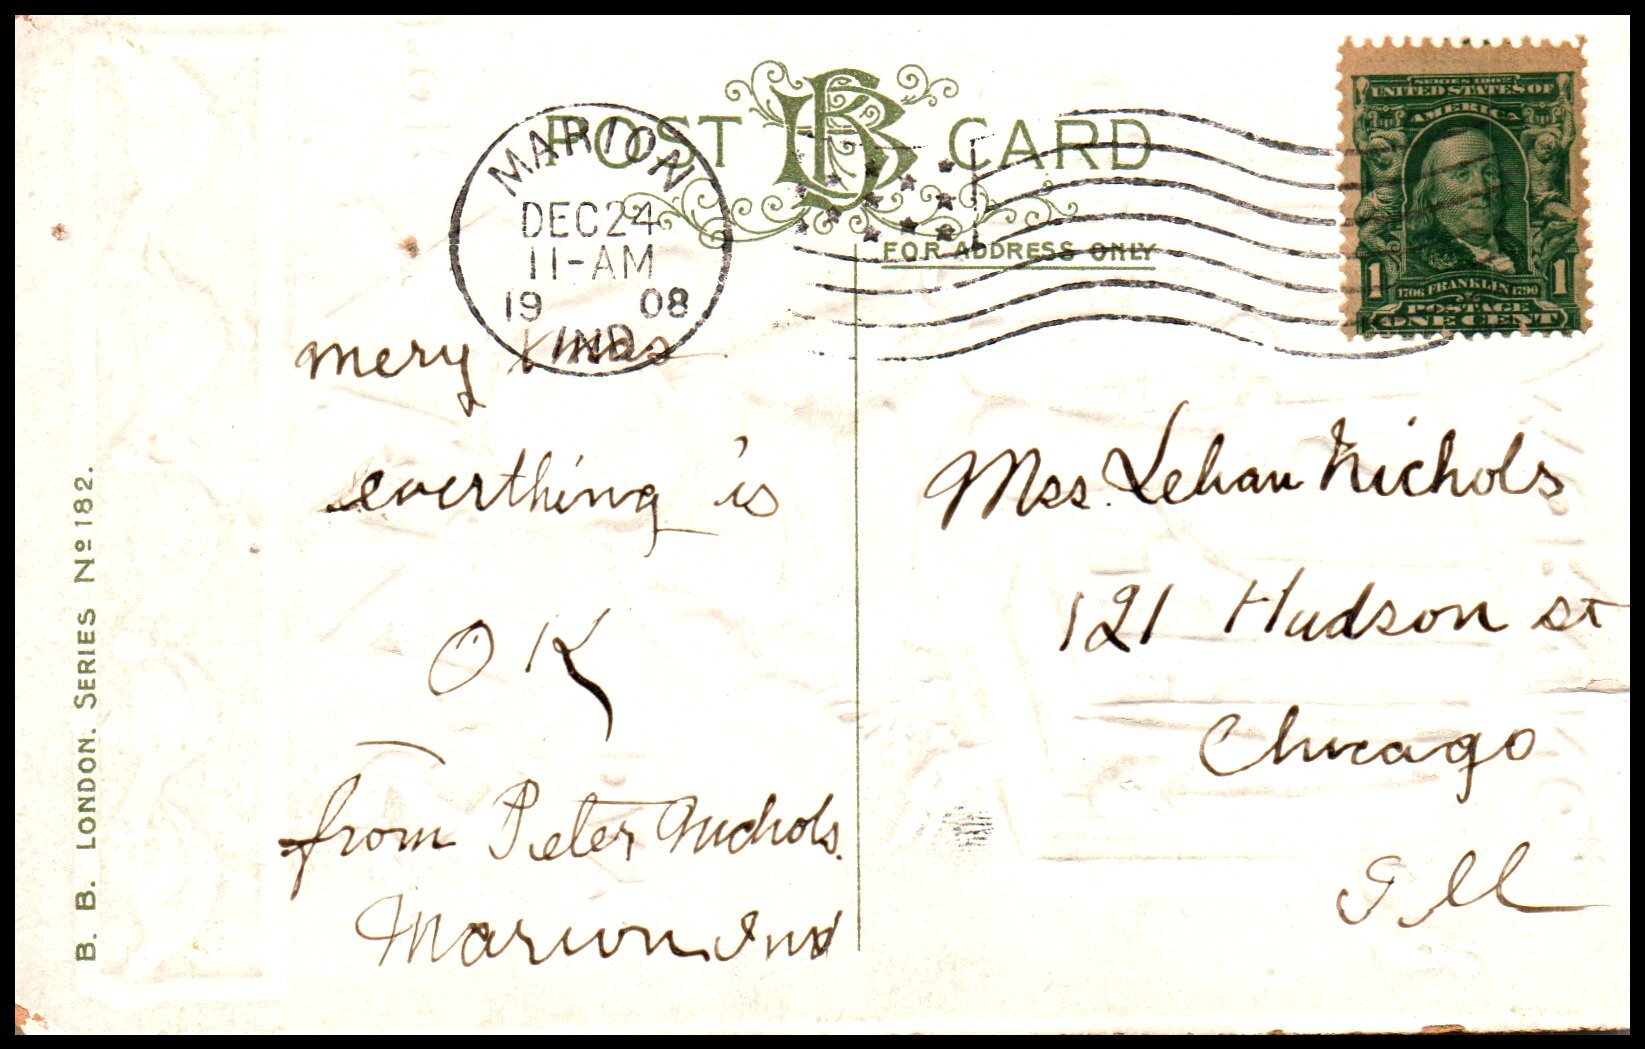 POST CARD
BB
FOR ADDRESS ONLY
MARION
DEC 24
11-AM
19 08
IND.
SERIES 1902
UNITED STATES OF
AMERICA
1 1706 FRANKLIN 1790 1
POSTAGE
ONE CENT
mery Xmas
everthing is
O K
from Peter Nichols.
Marion Ind
Mss. Lehau Nichols
121 Hudson st
Chicago
Ill
B. B. LONDON. SERIES Nº 182.